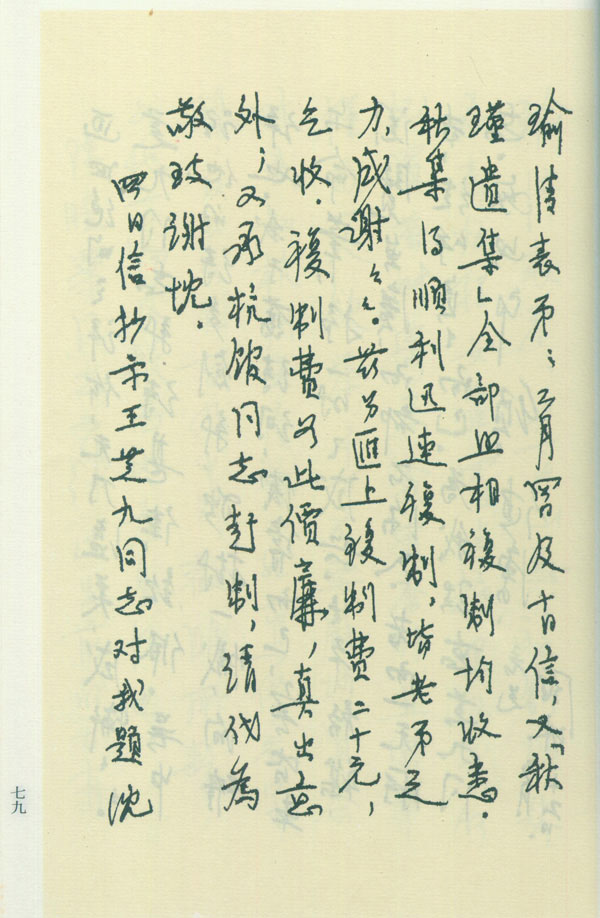 瑜清表弟：二月四日及十日信，又「秋
瑾遺集」全部照相複制均收悉。
秋集得順利迅速複制，皆老弟之
力，感谢々々。兹另匯上複制費二十元，
乞收。複制費如此價廉，真出意
外；又承杭館同志赶制，請代為
敬致谢忱。
四日信抄示王芝九同志对我題沈
七九